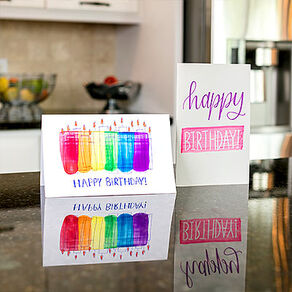 HAPPY BIRTHDAY!
happy
BIRTHDAY!